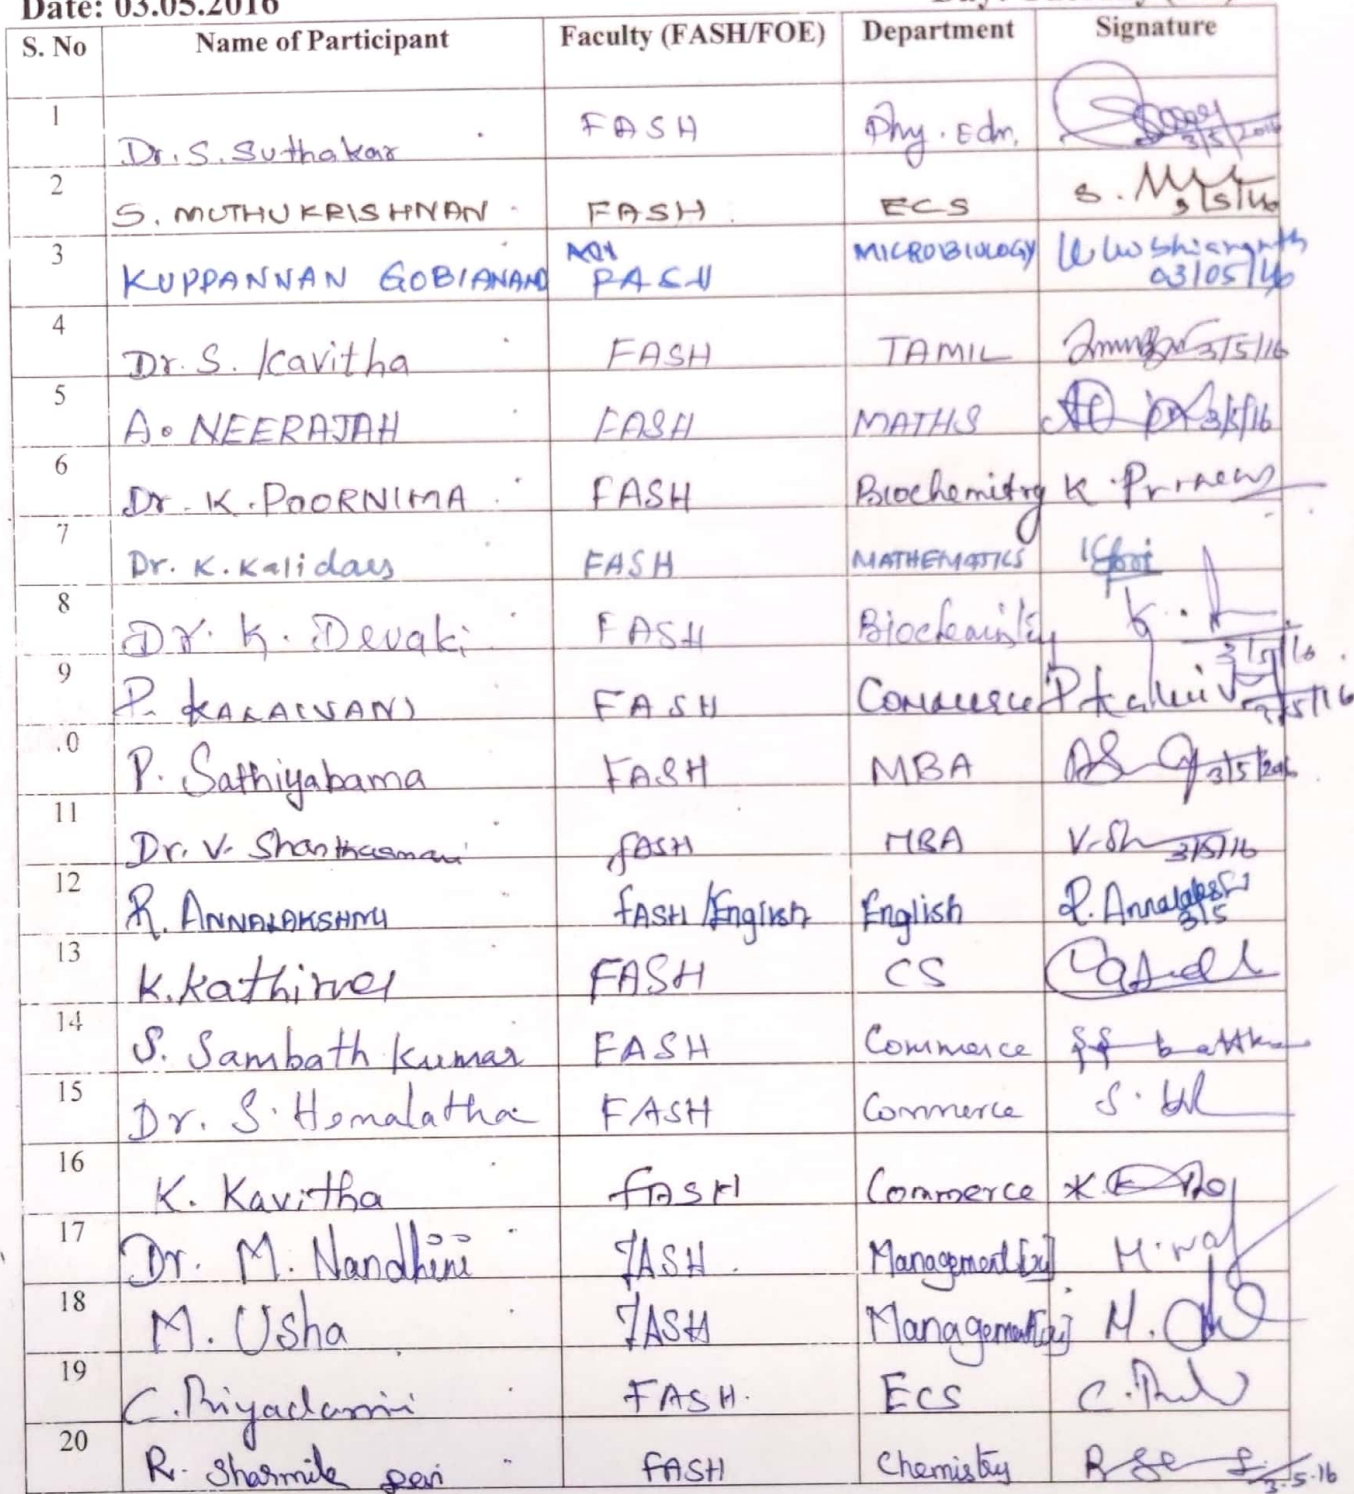 Date: 03.05.2016
S. No Name of Participant Faculty (FASH/FOE) Department Signature
1 Dr. S. Suthakar FASH Phy. Edn. 3/5/2016
2 S. MUTHUKRISHNAN FASH ECS S. 3/5/16
3 KUPPANNAN GOBIANAND FASH MICROBIOLOGY 03/05/16
4 Dr. S. Kavitha FASH TAMIL 3/5/16
5 A. NEERAJAH FASH MATHS 3/5/16
6 Dr. K. POORNIMA FASH Biochemitry K.
7 Dr. K. Kalidass FASH MATHEMATICS
8 Dr. K. Devaki FASH Biochemistry K. 3/5/16
9 P. KALAIVANI FASH Commerce P 3/5/16
.0 P. Sathiyabama FASH MBA 3/5/2016
11 Dr. V. Shanthamani FASH MBA V. Sh 3/5/16
12 R. ANNALAKSHMI FASH/English English R. Annalakshmi 3/5
13 K. Kathirvel FASH CS
14 S. Sambath Kumar FASH Commerce
15 Dr. S. Hemalatha FASH Commerce S.
16 K. Kavitha FASH Commerce K.
17 Dr. M. Nandhini FASH. Management M.
18 M. Usha FASH Management M.
19 C. Priyadarsini FASH. ECS C.
20 R. Sharmila Devi FASH Chemistry R 3.5.16